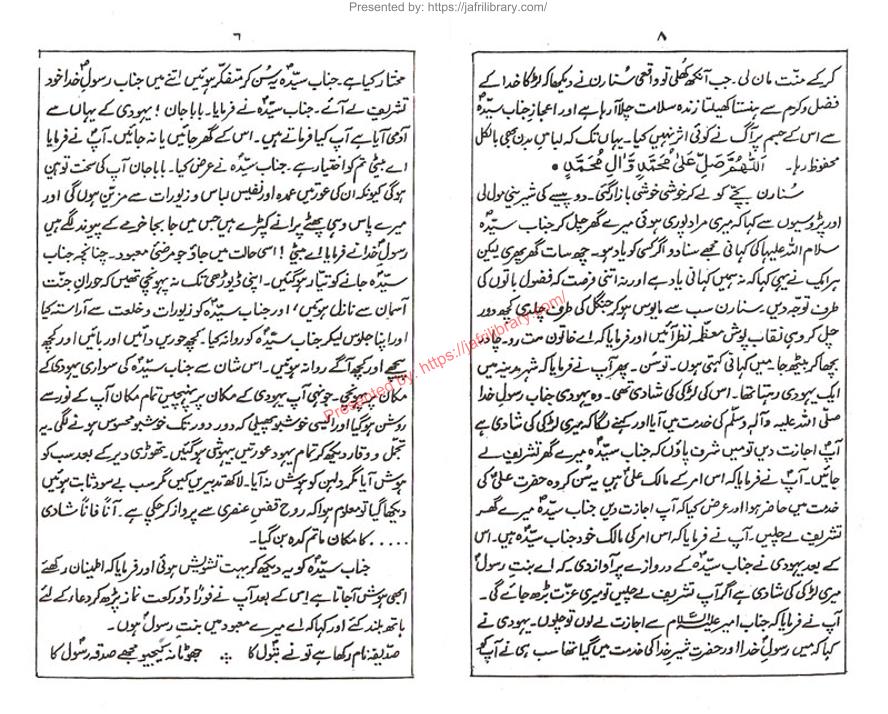 Presented by: https://jafrilibrary.com/
۸
کر کے منّت مان لی۔ جب آنکھ کُھلی تو واقعی سُنارن نے دیکھا کہ لڑکا خدا کے
فضل و کرم سے ہنستا کھیلتا زندہ سلامت چلا آ رہا ہے اور اعجازِ جناب سیّدہؑ
سے اس کے جسم پر آگ نے کوئی اثر نہیں کیا۔ یہاں تک کہ لباس بدن بھی بالکل
محفوظ رہا۔ اَللّٰھُمَّ صَلِّ عَلٰی مُحَمَّدٍ وَّاٰلِ مُحَمَّدٍ۔
سُنارن بچّے کو لے کر خوشی خوشی بازار گئی۔ دو پیسے کی شیرینی مول لی
اور پڑوسیوں سے کہا کہ میری مراد پوری ہوئی میرے گھر چل کر جناب سیّدہ
سلام اللہ علیہا کی کہانی مجھے سنا دو اگر کسی کو یاد ہو۔ چھ سات گھر پھری لیکن
ہر ایک نے یہی کہا کہ نہ ہمیں کہانی یاد ہے اور نہ اتنی فرصت کہ فضول باتوں کی
طرف توجّہ دیں۔ سنارن سب سے مایوس ہو کر جنگل کی طرف چلدی کچھ دور
چل کر وہی نقاب پوش معظّمہ نظر آئیں اور فرمایا کہ اے خاتون مت رو۔ چادر
بچھا کر بیٹھ جا میں کہانی کہتی ہوں۔ تو سُن۔ پھر آپ نے فرمایا کہ شہر مدینہ میں
ایک یہودی رہتا تھا۔ اس کی لڑکی کی شادی تھی۔ وہ یہودی جناب رسولِ خدا
صلّی اللہ علیہ و آلہ وسلّم کی خدمت میں آیا اور کہنے لگا کہ میری لڑکی کی شادی ہے
آپؐ اجازت دیں تو میں شرف پاؤں کہ جناب سیّدہؑ میرے گھر تشریف لے
جائیں۔ آپؐ نے فرمایا کہ اس امر کے مالک علیؑ ہیں یہ سُن کر وہ حضرت علیؑ کی
خدمت میں حاضر ہوا اور عرض کیا کہ آپ اجازت دیں جناب سیّدہؑ میرے گھر
تشریف لے چلیں۔ آپ نے فرمایا کہ اس امر کی مالک خود جناب سیّدہؑ ہیں۔ اس
کے بعد یہودی نے جناب سیّدہؑ کے دروازے پر آواز دی کہ اے بنتِ رسولؐ
میری لڑکی کی شادی ہے اگر آپ تشریف لے چلیں تو میری عزّت بڑھ جائے گی۔
آپ نے فرمایا کہ جناب امیر علیہ السّلام سے اجازت لے لوں تو چلوں۔ یہودی نے
کہا کہ میں رسولِ خدا اور حضرت شیرِ خدا کی خدمت میں گیا تھا سب ہی نے آپ کو
٦
مختار کیا ہے۔ جناب سیّدہؑ یہ سُن کر متفکّر ہوئیں اتنے میں جناب رسولِ خدا خود
تشریف لے آئے۔ جناب سیّدہؑ نے فرمایا۔ بابا جان! یہودی کے یہاں سے
آدمی آیا ہے آپ کیا فرماتے ہیں۔ اس کے گھر جائیں یا نہ جائیں۔ آپؐ نے فرمایا
اے بیٹی تم کو اختیار ہے۔ جناب سیّدہؑ نے عرض کیا۔ بابا جان آپ کی سخت توہین
ہو گی کیونکہ ان کی عورتیں عمدہ اور نفیس لباس و زیورات سے مزیّن ہوں گی اور
میرے پاس وہی پھٹے پرانے کپڑے ہیں جس میں جا بجا خرمے کے پیوند لگے ہیں
رسولِ خدا نے فرمایا اے بیٹی! اسی حالت میں جاؤ جو مرضئ معبود۔ چنانچہ جناب
سیّدہؑ جانے کو تیار ہو گئیں۔ اپنی ڈیوڑھی تک نہ پہونچی تھیں کہ حورانِ جنّت
آسمان سے نازل ہوئیں، اور جناب سیّدہؑ کو زیورات و خلعت سے آراستہ کیا
اور اپنا جلوس لیکر جناب سیّدہؑ کو روانہ کیا۔ کچھ حوریں دائیں اور بائیں اور کچھ
پیچھے اور کچھ آگے روانہ ہوئیں۔ اس شان سے جناب سیّدہؑ کی سواری یہودی کے
مکان پر پہونچی۔ جونہی آپ یہودی کے مکان پر پہنچیں تمام مکان آپ کے نور سے
روشن ہو گیا اور ایسی خوشبو پھیلی کہ دور دور تک خوشبو محسوس ہونے لگی۔ یہ
تجمّل و وقار دیکھ کر تمام یہود عورتیں بیہوش ہو گئیں۔ تھوڑی دیر کے بعد سب کو
ہوش آیا مگر دلہن کو ہوش نہ آیا۔ لاکھ تدبیریں کیں مگر سب بے سود ثابت ہوئیں
دیکھا گیا تو معلوم ہوا کہ روح قفسِ عنصری سے پرواز کر چکی ہے۔ آناً فاناً شادی
..... کا مکان ماتم کدہ بن گیا۔
جناب سیّدہؑ کو یہ دیکھ کر بہت تشویش ہوئی اور فرمایا کہ اطمینان رکھئے
ابھی ہوش آ جاتا ہے اس کے بعد آپ نے فوراً دو رکعت نماز پڑھ کر دعاء کے لئے
ہاتھ بلند کئے اور کہا کہ اے میرے معبود میں بنتِ رسولؐ ہوں۔
صدیقہ نام رکھا ہے تو نے بتولؑ کا ؞ جھوٹا نہ کیجیو مجھے صدقہ رسولؐ کا
Presented by: https://jafrilibrary.com/